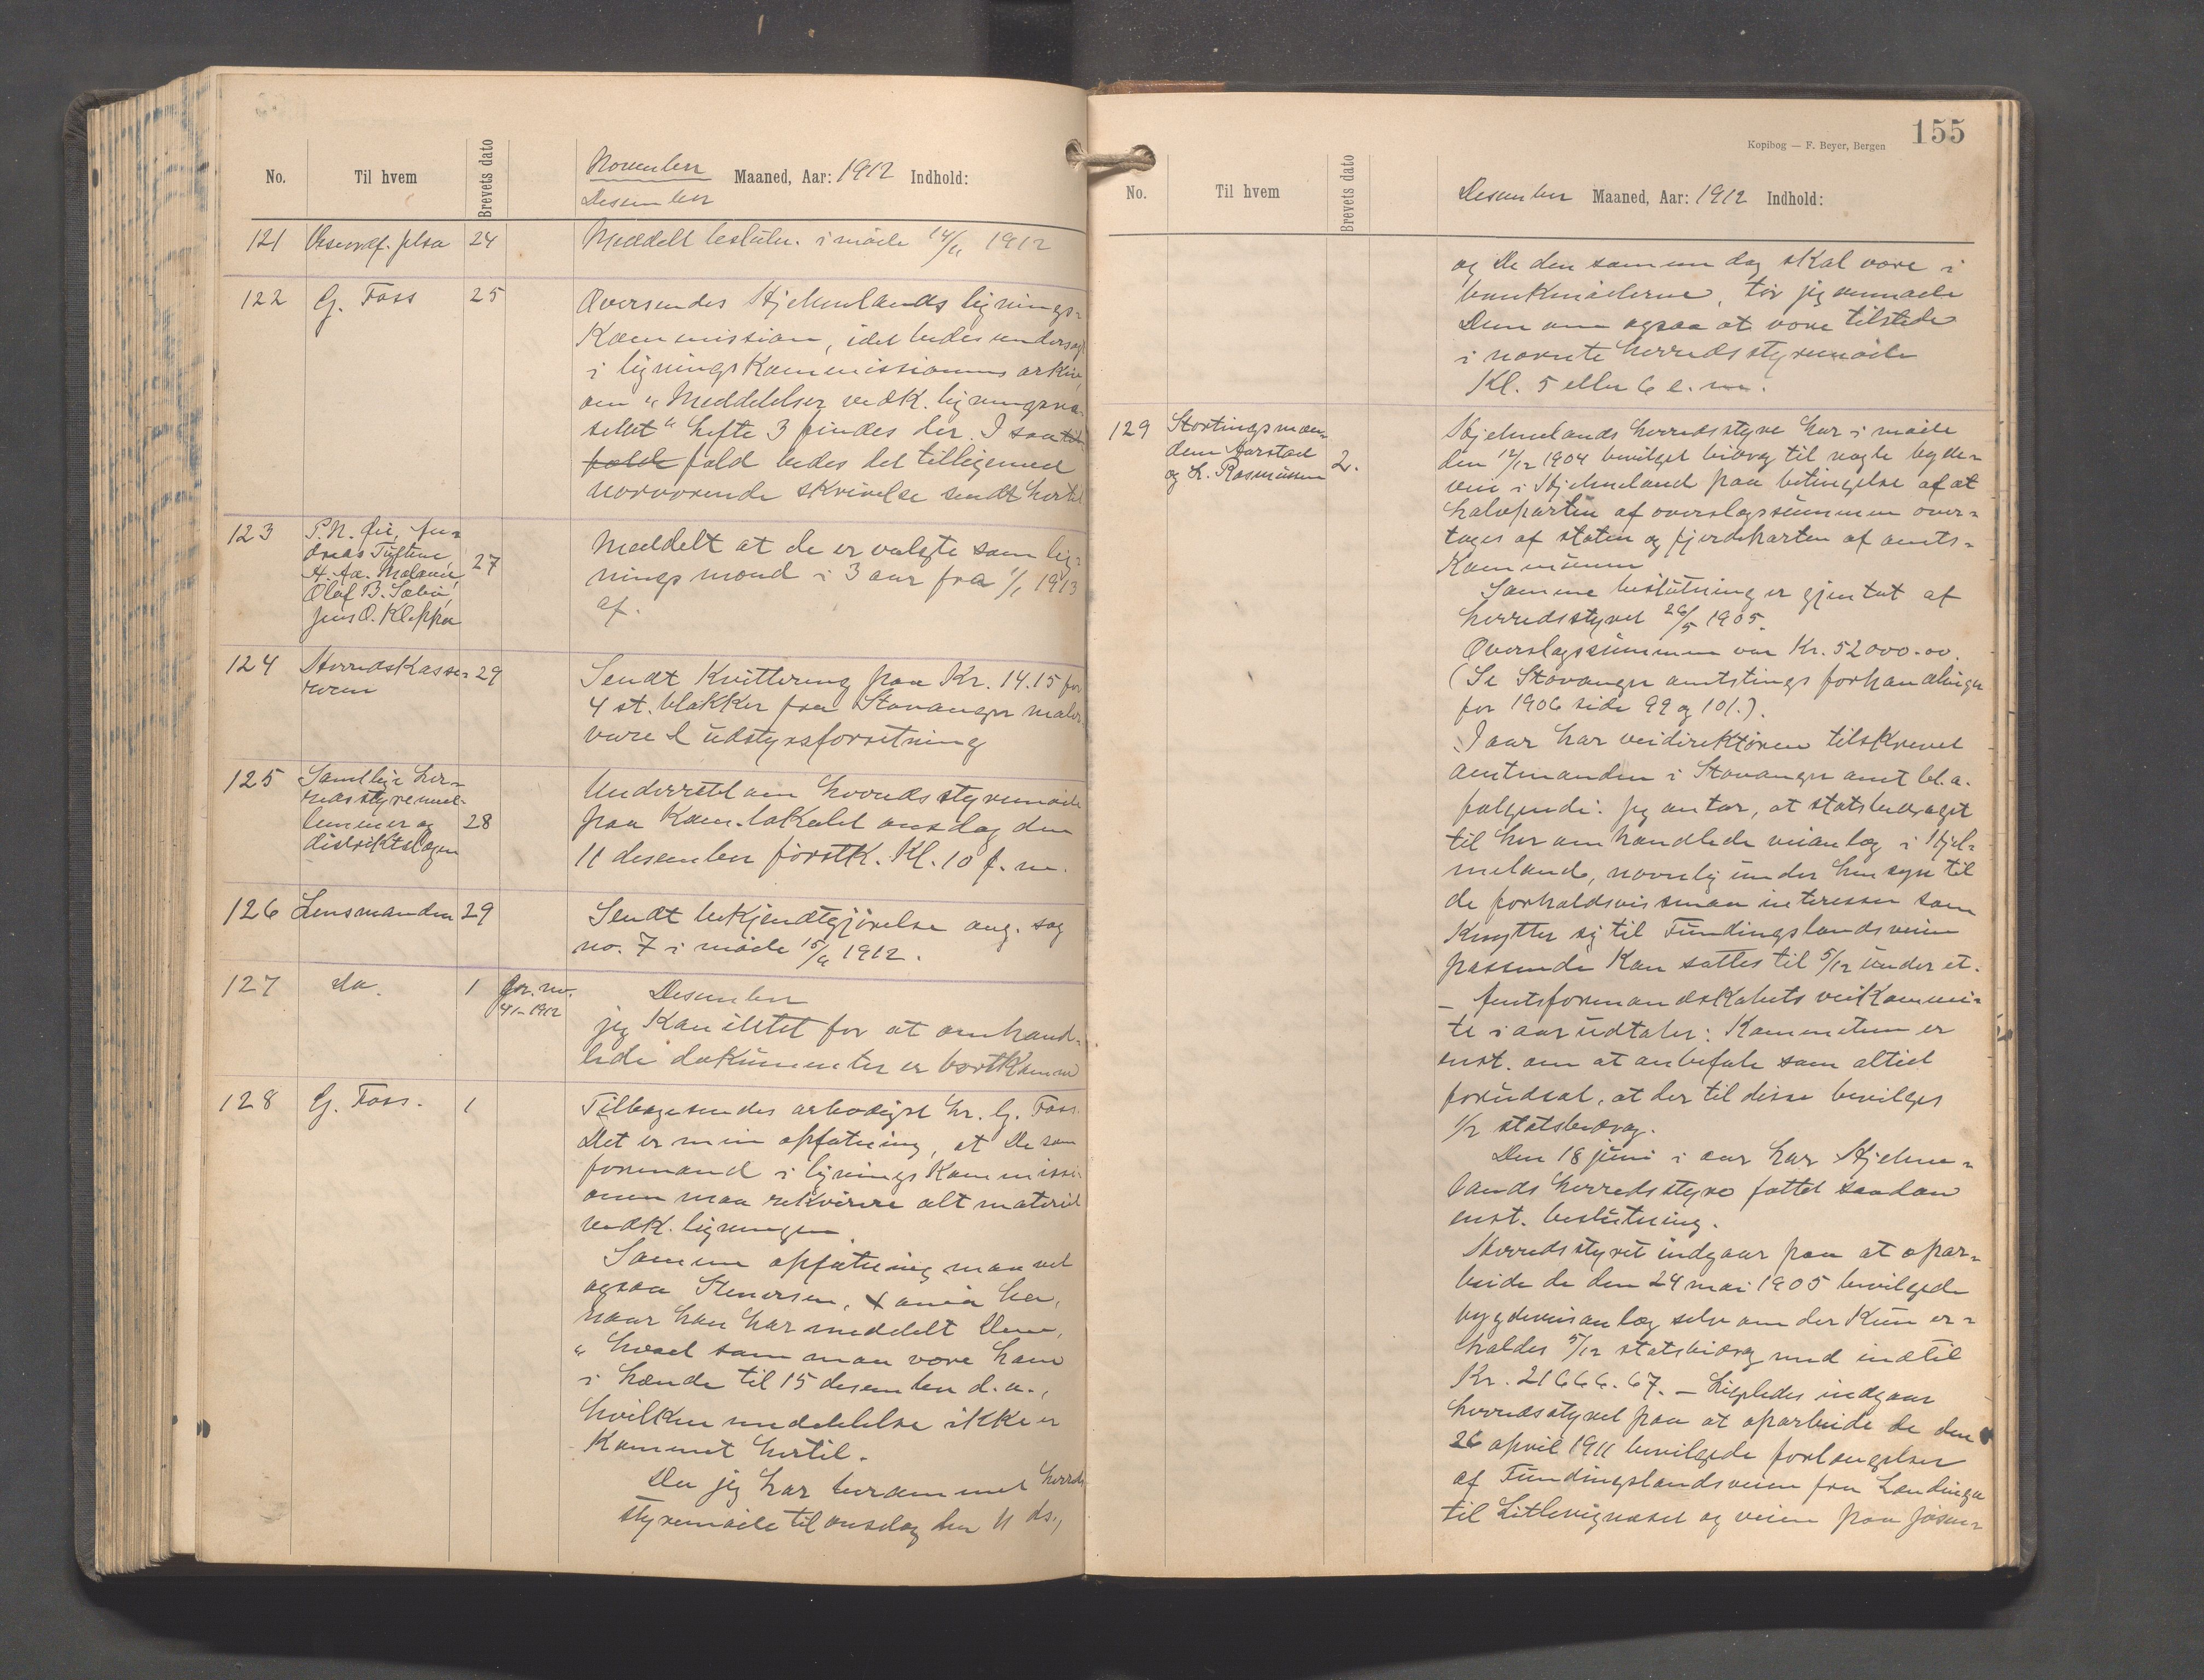 No. Til hvem Brevets dato November Maaned, Aar: 1912 Indhold:
Desember
121 24 Meddelt beslutn. i møde 14/11 1912
122 G. Foss 25 Oversendes Hjelmelands lignings-
Kommission, idet bedes undersøgt
i lignings Kommissionens arkiv,
om "Meddelelser vedk. ligningsvæ-
senet" hefte 3 findes der. I saa
fald bedes det tilligemed
nærværende skrivelse sendt hertil
123 P.N. Øie, An-
dreas Tytlan
H. Aa. Maland
Olaf B. Sæbø
Jens O. Kleppa
27 Meddelt at de er valgte som lig-
ningsmænd i 3 aar fra 1/1 1913
af.
124 Herredskasse-
reren
29 Sendt Kvittering paa Kr. 14.15 for
4 st. blakker fra Stavanger maler-
vare & udstyrsforretning
125 Samtlige her-
redsstyremed-
lemmer og
distriktslægen
28 Underrettet om herredsstyremøde
paa Kom. lokalet onsdag den
11 desember førstk. Kl. 10 f. m.
126 Lensmanden 29 Sendt bekjendtgjørelse ang. sag
no. 7 i møde 15/11 1912.
127 do. 1 Jor. no.
41-1912
Desember
Jeg Kan intet for at omhand-
lede dokumenter er bortkomne
128 G. Foss. 1 Tilbagesendes ærbødigst hr. G. Foss.
Det er min opfatning, at De som
formand i lignings Kommissi-
onen maa rekvirere alt materiel
vedk. ligningen
Samme opfatning maa vel
ogsaa Stenersen, ha,
naar han har meddelt Dem,
"hvad som maa være ham
i hænde til 15 desember d.a.,
hvilken meddelelse ikke er
Kommet hertil.
Da jeg har berammet herreds
styremøde til onsdag den 11 ds.,
Kopibog — F. Beyer, Bergen 155
No. Til hvem Brevets dato Desember Maaned, Aar: 1912 Indhold:
og De den samme dag skal være i
bankmøderne, tør jeg anmode
Dem om ogsaa at være tilstede
i nævnte herredsstyremøde
Kl. 5 eller 6 e. m.
129 Stortingsmæn-
dene Aarstad
og L. Rasmussen
2. Hjelmelands herredsstyre har i møde
den 12/12 1904 bevilget bidrag til nogle bygde-
veie i Hjelmeland paa betingelse af at
halvparten af overslagssummen over-
tages af staten og fjerdeparten af amts-
Kommunen
Samme beslutning er gjentat af
herredsstyret 26/5 1905.
Overslagssummen var Kr. 52000.00.
(Se Stavanger amtstings forhandlinger
for 1906 side 99 og 101.).
I aar har veidirektøren tilskrevet
amtmanden i Stavanger amt bl.a.
følgende: Jeg antar, at statsbidraget
til her omhandlede veianlæg i Hjel-
meland, navnlig under hensyn til
de forholdsvis smaa interesser som
Knytter sig til Fundingslandsveien
passende Kan sættes til 5/12 under et.
— Amtsformandskabets veikommi-
te i aar udtaler: Kommiteen er
enst. om at anbefale som altid
forudsat, at der til disse bevilges
1/2 statsbidrag.
Den 18 juni i aar har Hjelme-
lands herredsstyre fattet saadan
enst. beslutning.
Herredsstyret indgaar paa at opar-
beide de den 24 mai 1905 bevilgede
bygdeveianlæg selv om der Kun er-
holdes 5/12 statsbidrag med indtil
Kr. 21666.67. — Ligeledes indgaar
herredsstyret paa at oparbeide de den
26 april 1911 bevilgede forlængelser
af Fundingslandsveien fra Landinga
til Litlevignæset og veien paa Jøsen-